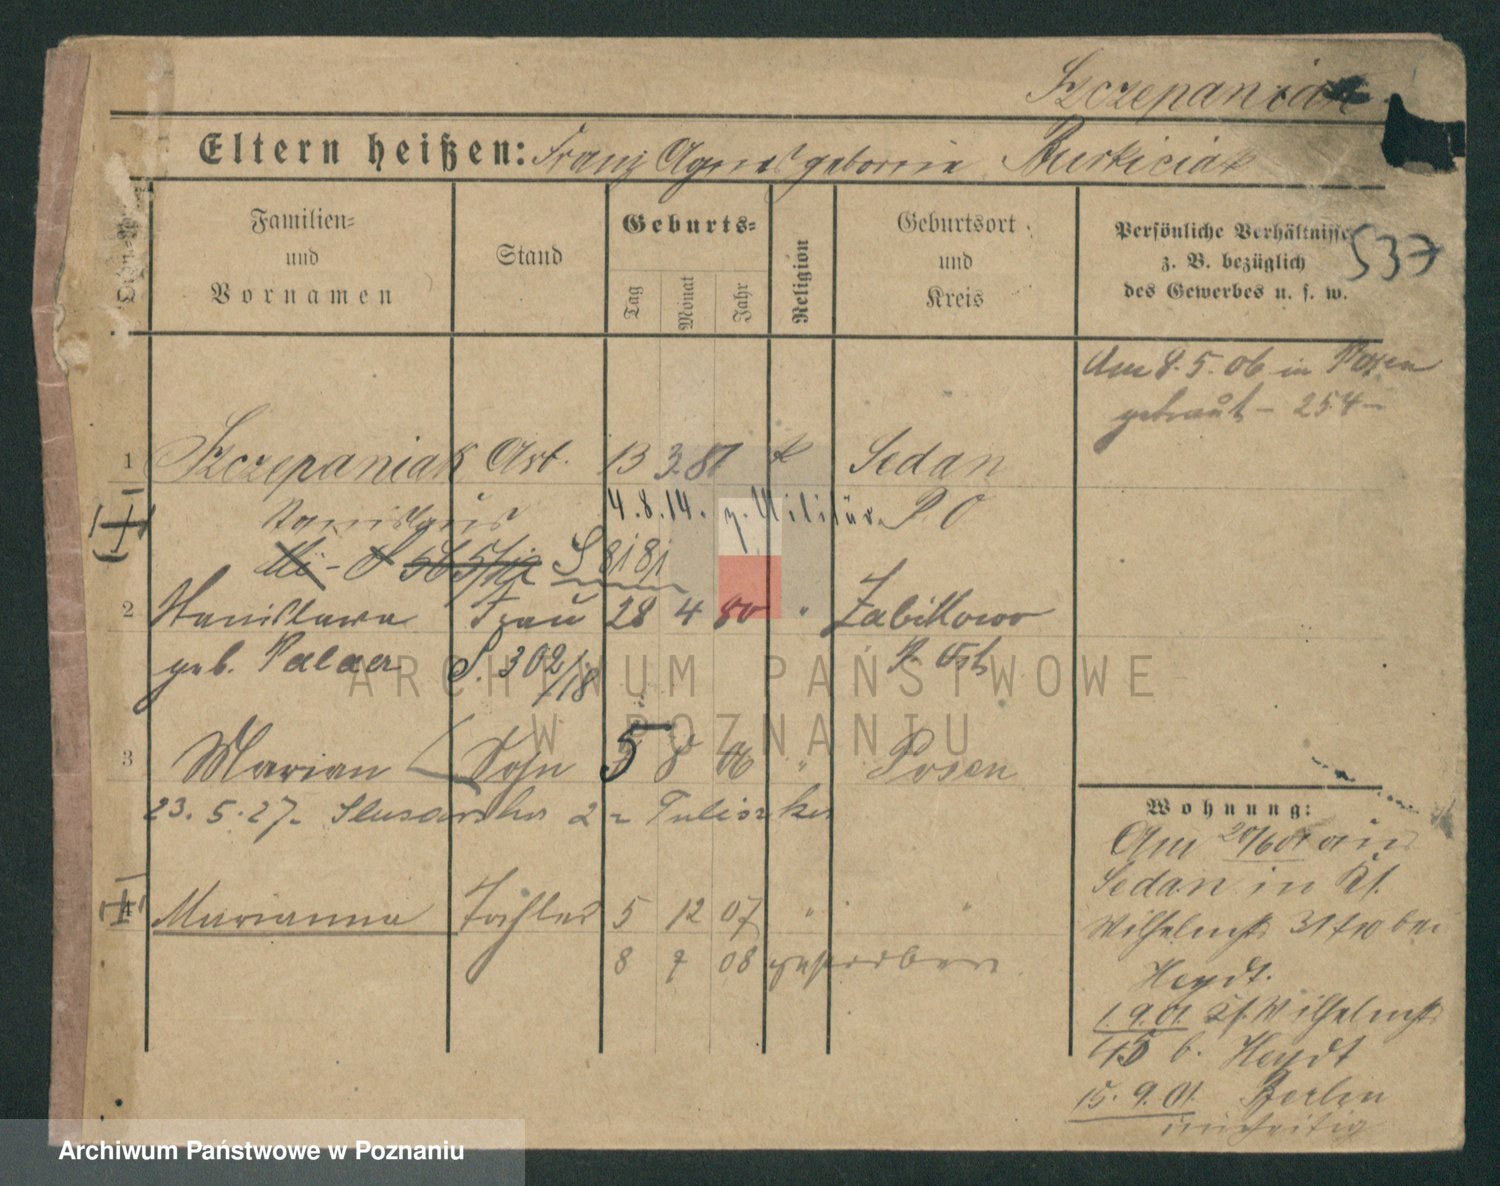 Szczepaniak
Eltern heißen: Franz Agnes geborene
Familien-
und
Vornamen
Stand
Geburts-
Tag
Monat
Jahr
Religion
Geburtsort
und
Kreis
Persönliche Verhältnisse
z. B. bezüglich
des Gewerbes u. s. w.
537
Am 8.5.06 in Posen
getraut - 254 -
1 Szczepaniak Arb. 13 3 81 k Sedan
Stanislaus 4.8.14. z. Militär. P. O
S 8181
2 Stanislawa Frau 28 4 80 " Zabikowo
geb. S. 302/18 P. Ost
3 Marian Sohn 5 8 06 " Posen
23.5.27. 2 -
4 Marianna Tochter 5 12 07 " "
8 7 08 gestorben
Wohnung:
Am aus
Sedan in Kf.
Wilhelmstr 31 bei
Heydt.
1.9.01. Kf. Wilhelmstr
b. Heydt
15.9.01. Berlin
ARCHIWUM PAŃSTWOWE
W POZNANIU
Archiwum Państwowe w Poznaniu